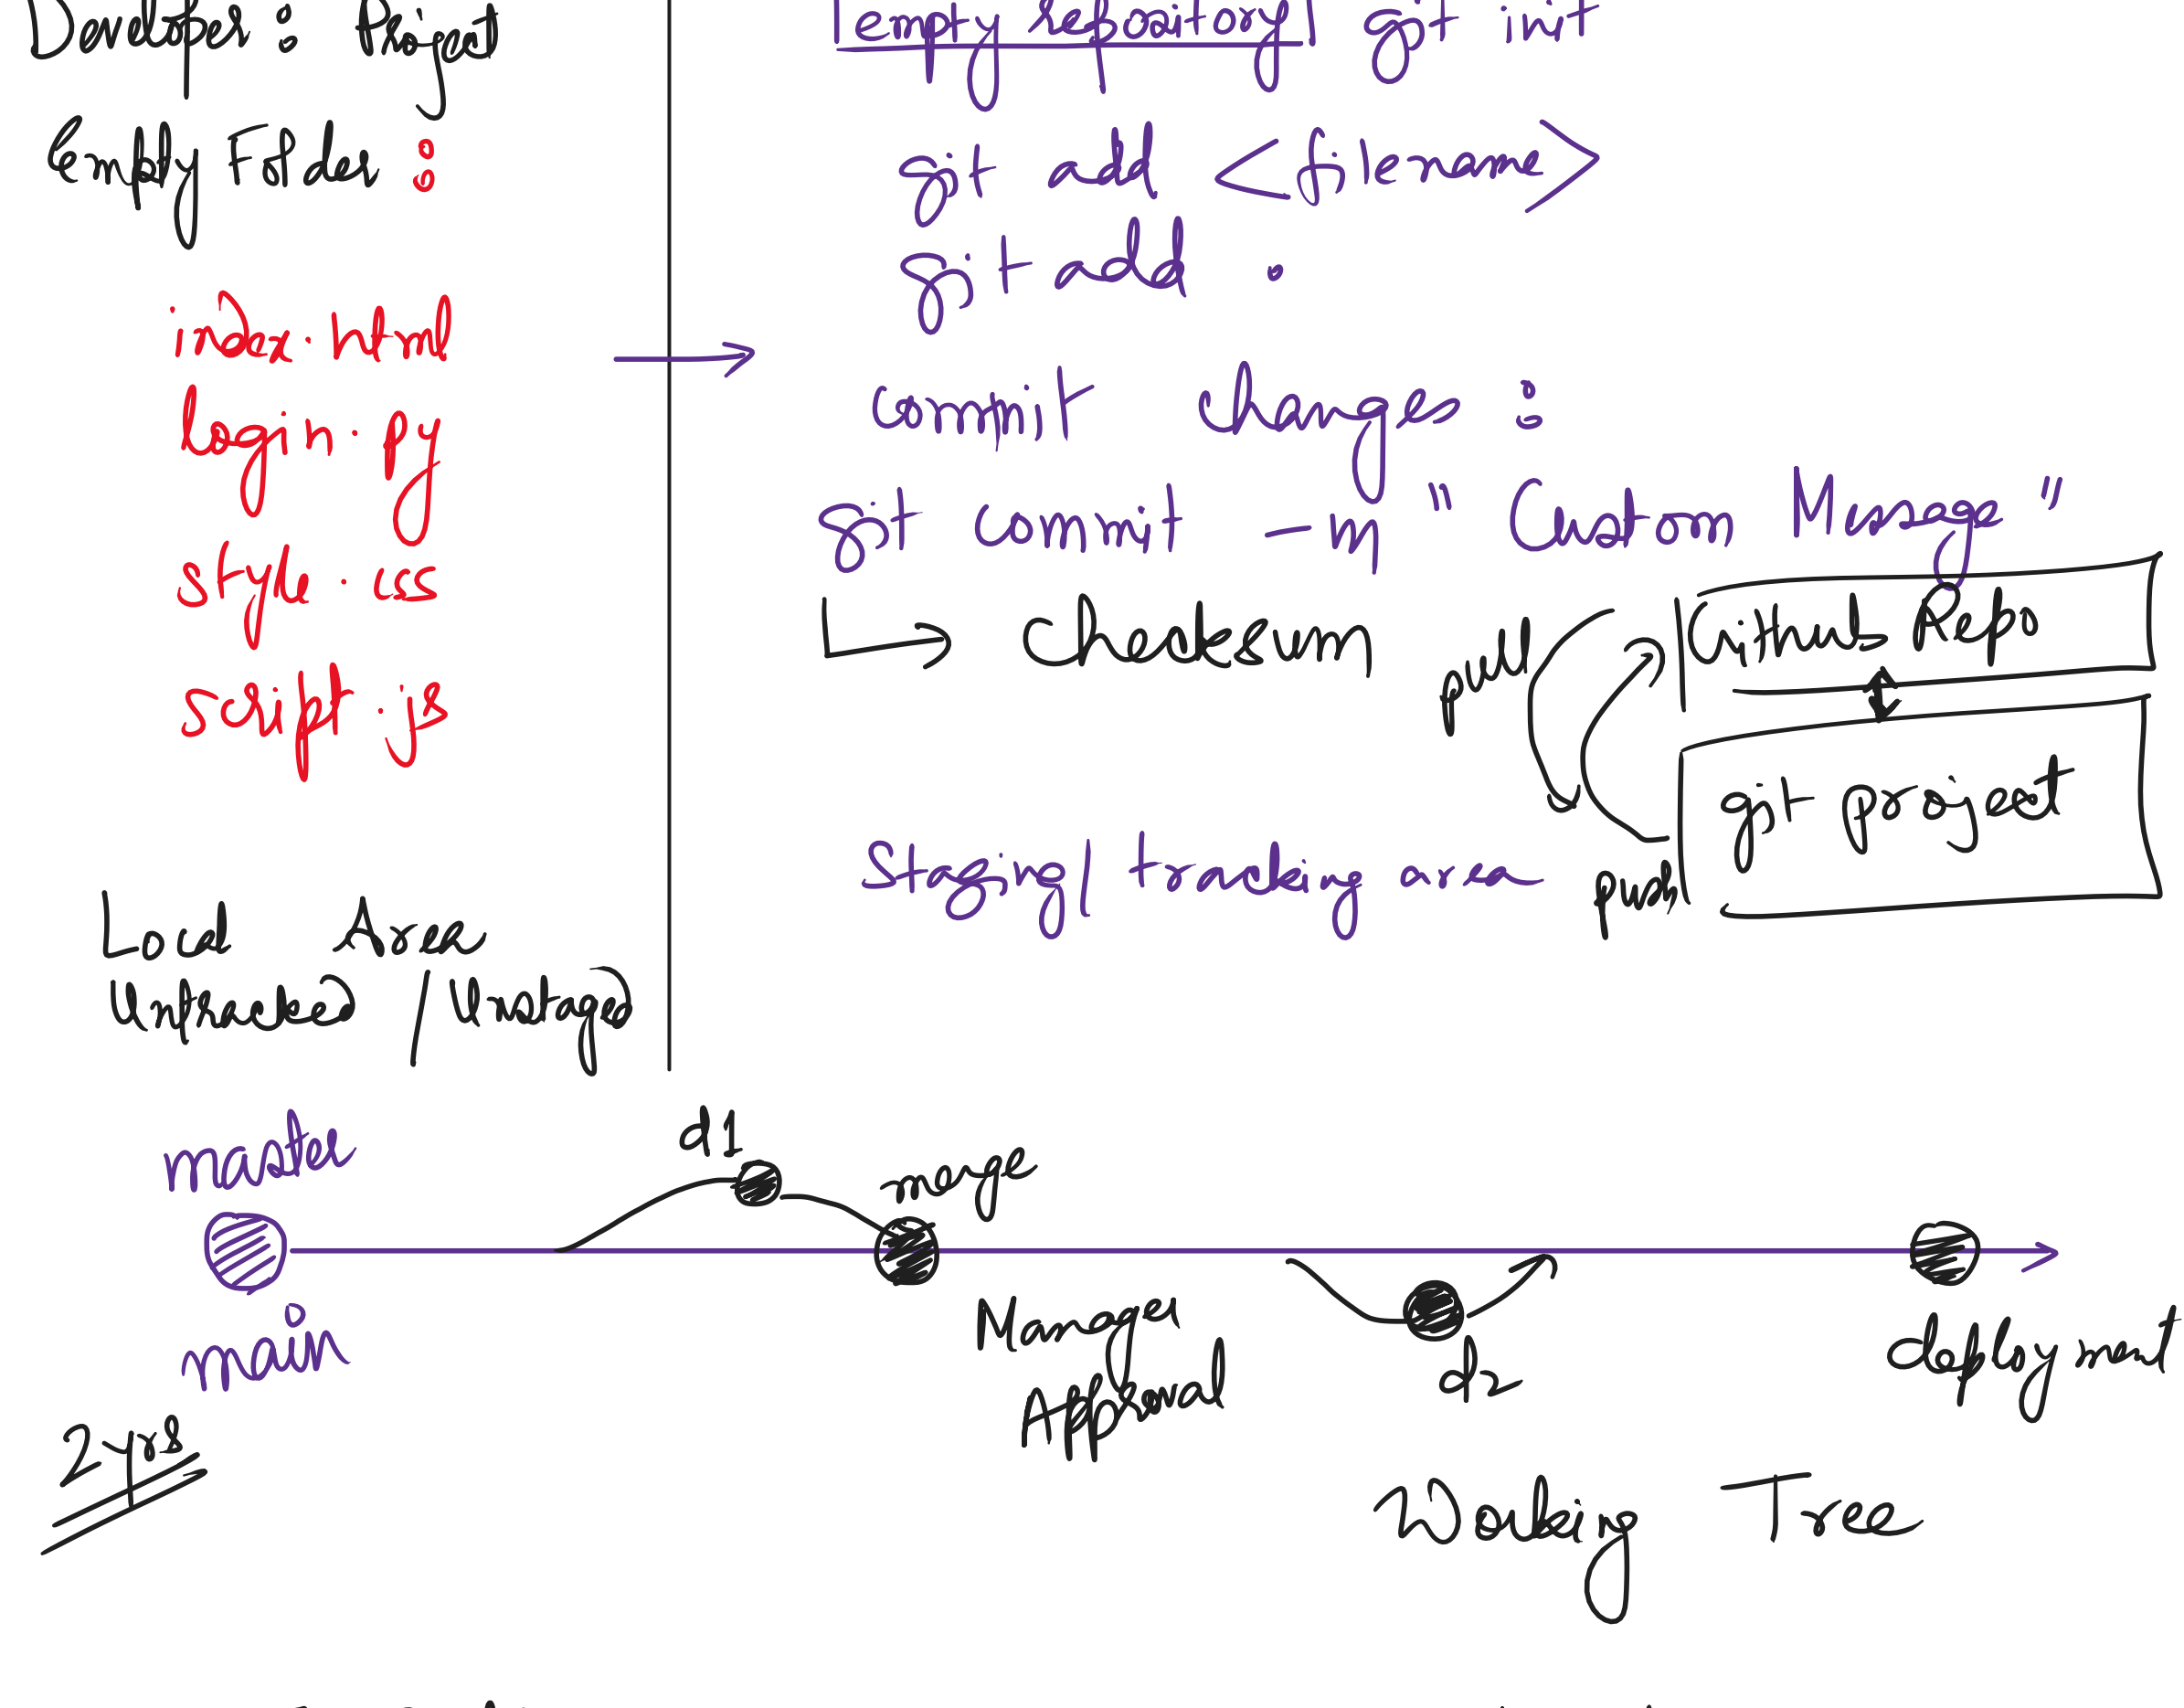 Developer: Project
Empty Folder :
index.html
login.py
style.css
script.js
Local Area
Untracked / Unstaged
Empty Repository git init
git add <filename>
git add .
commit changes :
git commit -m "Custom Message"
checksum
pull
Github Repo
git project
push
Staging/ tracking area
master
main
2yrs
d1
merge
Manager
Approval
d2
deployment
Working Tree